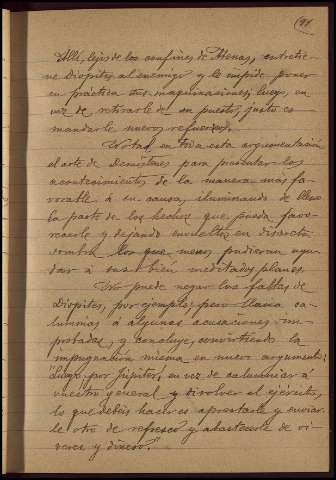 91.
Allí, lejos de los confines de Atenas, entretie-
ne Diopites al enemigo y le impide poner
en práctica sus maquinaciones; luego, en
vez de retirarle de su puesto, justo es
mandarle nuevos refuerzos.
Notad, en toda esta argumentación
el arte de Demóstenes para presentar los
acontecimientos de la manera más fa-
vorable á su causa, iluminando de lleno
la parte de los hechos que pueda favo-
recerle y dejando envueltos en discreta
sombra los que menos pudieran ayu-
dar á sus bien meditados planes.
No puede negar las faltas de
Diopites, por ejemplo; pero llama ca-
lumnias á algunas acusaciones im-
probadas, y concluye, convirtiendo la
impugnación misma en nuevo argumento:
"Luego, por Júpiter, en vez de calumniar á
vuestro general y disolver el ejército,
lo que debéis hacer es aprestarle y enviar-
le otro de refresco y abastecerle de ví-
veres y dinero."